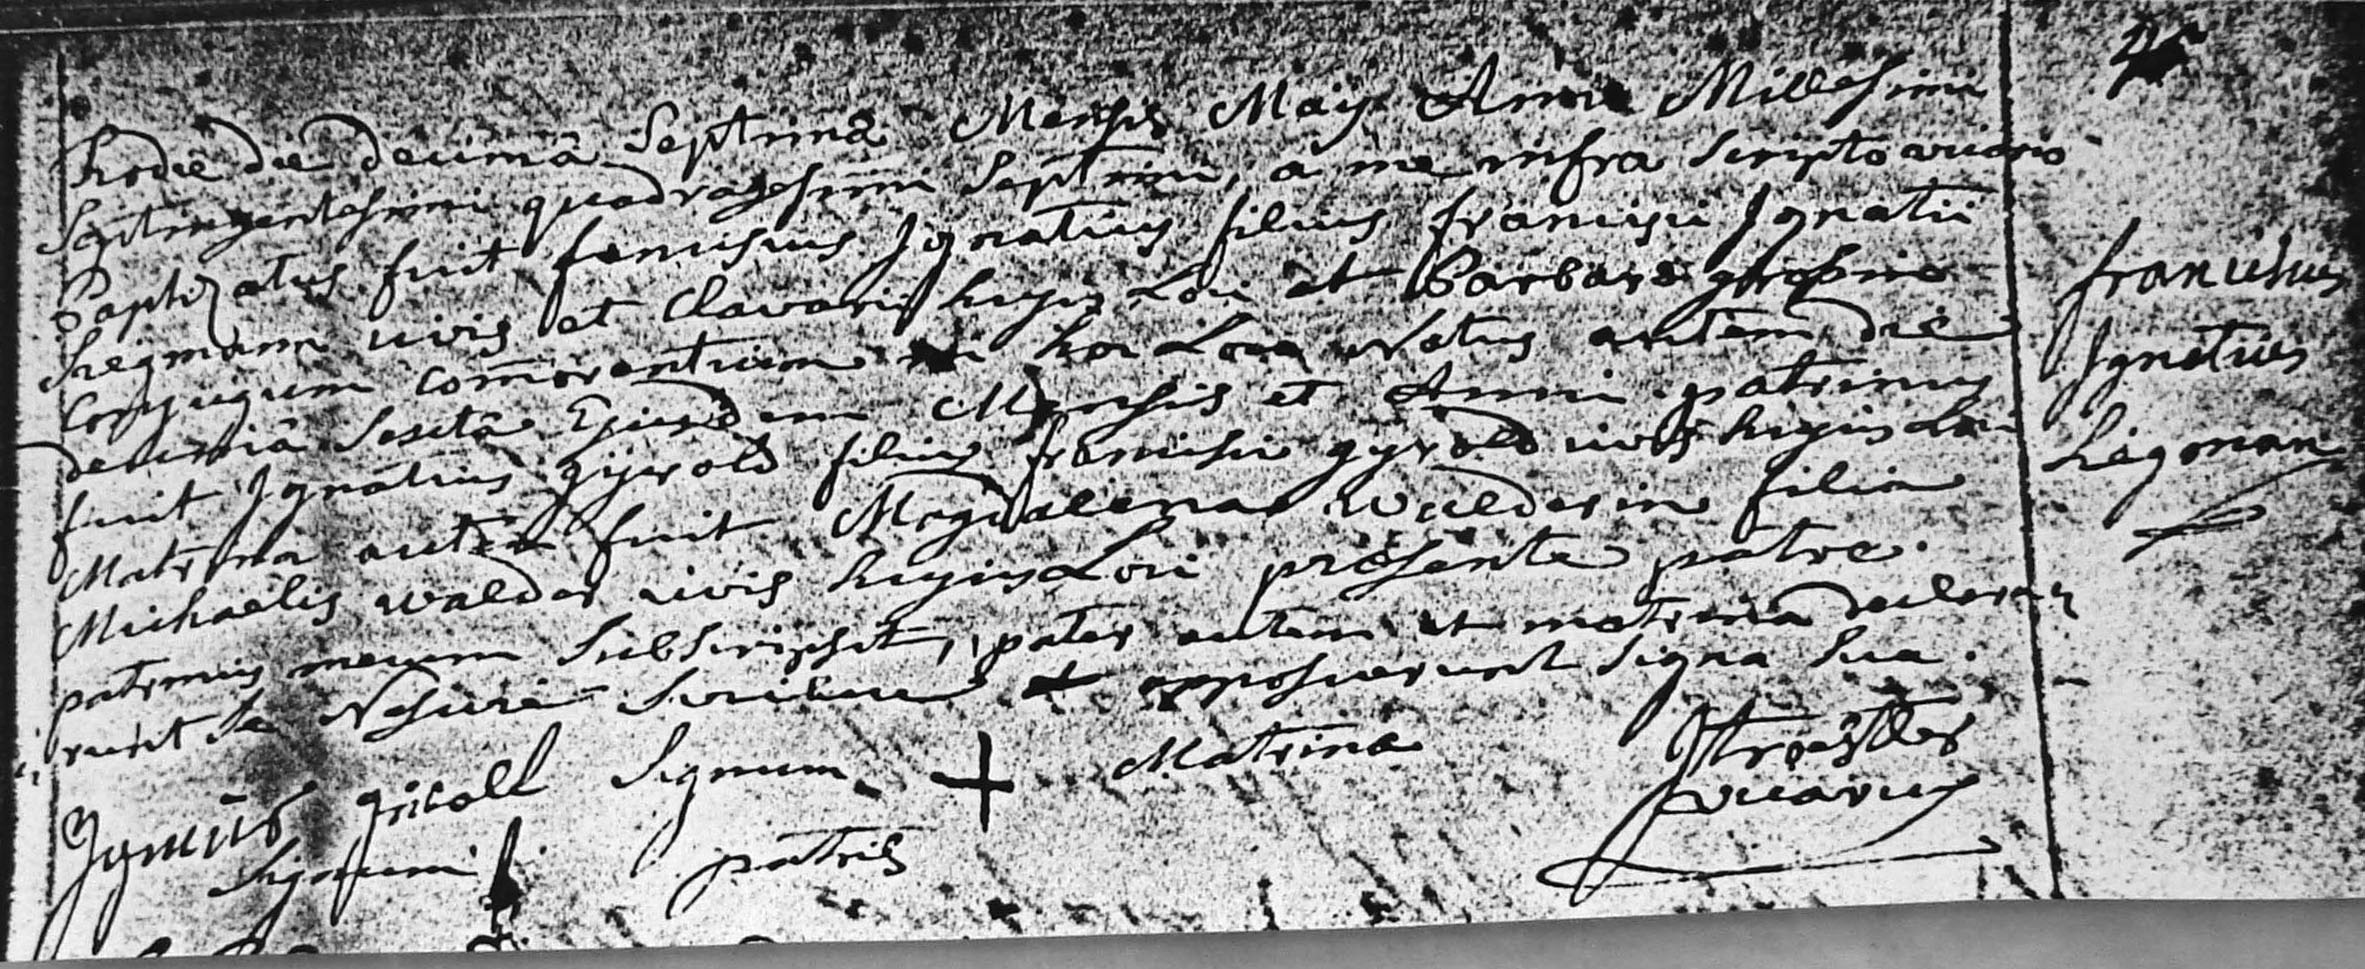 hodie die decimâ septimâ Mensis Maÿ Anni Millesimi
septingentesimi quadragesimi septimi, a me infra scripto vicario
Baptizatus fuit franciscus Ignatius filius francisci Ignatii
hegmann civis et Clavarii hujus Loci et Barbarâ
Conjugum Commorantium in hoc Loco Natus autem die
decimâ sextâ Ejusdem Mensis et Anni patrinus
fuit Ignatius gÿrold filius francisci gyrold civis hujus Loci
Matrina autem fuit Magdalena walderin filia
Michaëlis walder civis hujus Loci præsente patre.
patrinus mecum subscripsit, pater autem et matrina declara-
runt se Nescire scribere et apposuerunt signa sua.
Ignatius giroll signum + Matrinæ
signum patris
vicarius
franciscus
Ignatius
hegman